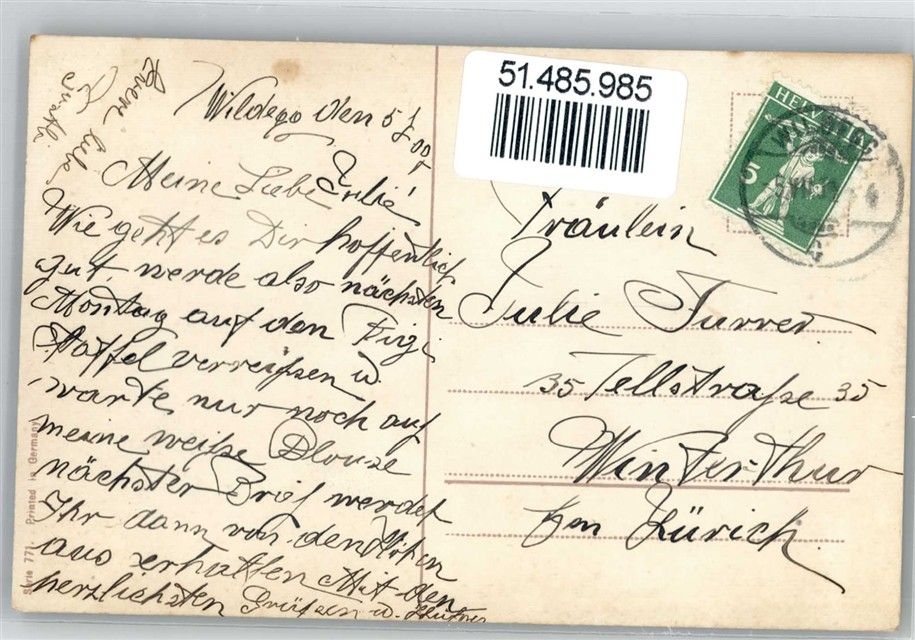 51.485.985
HELVETIA
5
WILDEGG
Wildegg den 5
Meine Liebe Julie!
Wie geht es Dir hoffentlich
gut, werde also nächsten
Montag auf den Rigi
Staffel verreisen u.
warte nur noch auf
meine weisse Blouse
nächster Brief werdet
Ihr dann von den Höhen
aus erhalten Mit den
herzlichsten Grüssen u. Küssen
Eure liebe
Fräulein
Julie Furrer
35 Tellstrasse 35
Winterthur
Ktn Zürich.
Serie 771. Printed in Germany